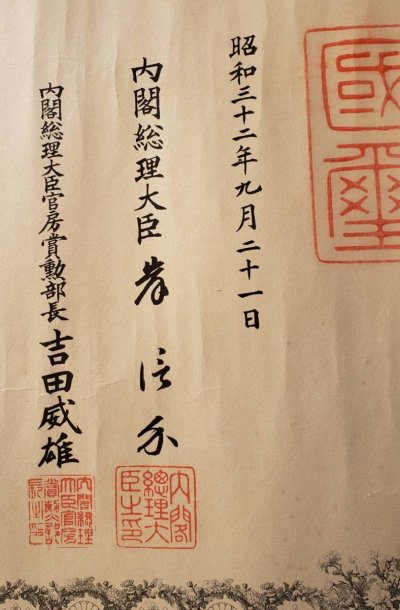 國璽
昭和三十二年九月二十一日
内閣総理大臣 岸信介
内閣
總理大
臣之印
内閣総理大臣官房賞勲部長 吉田威雄
内閣總理
大臣官房
賞勲部
長之印